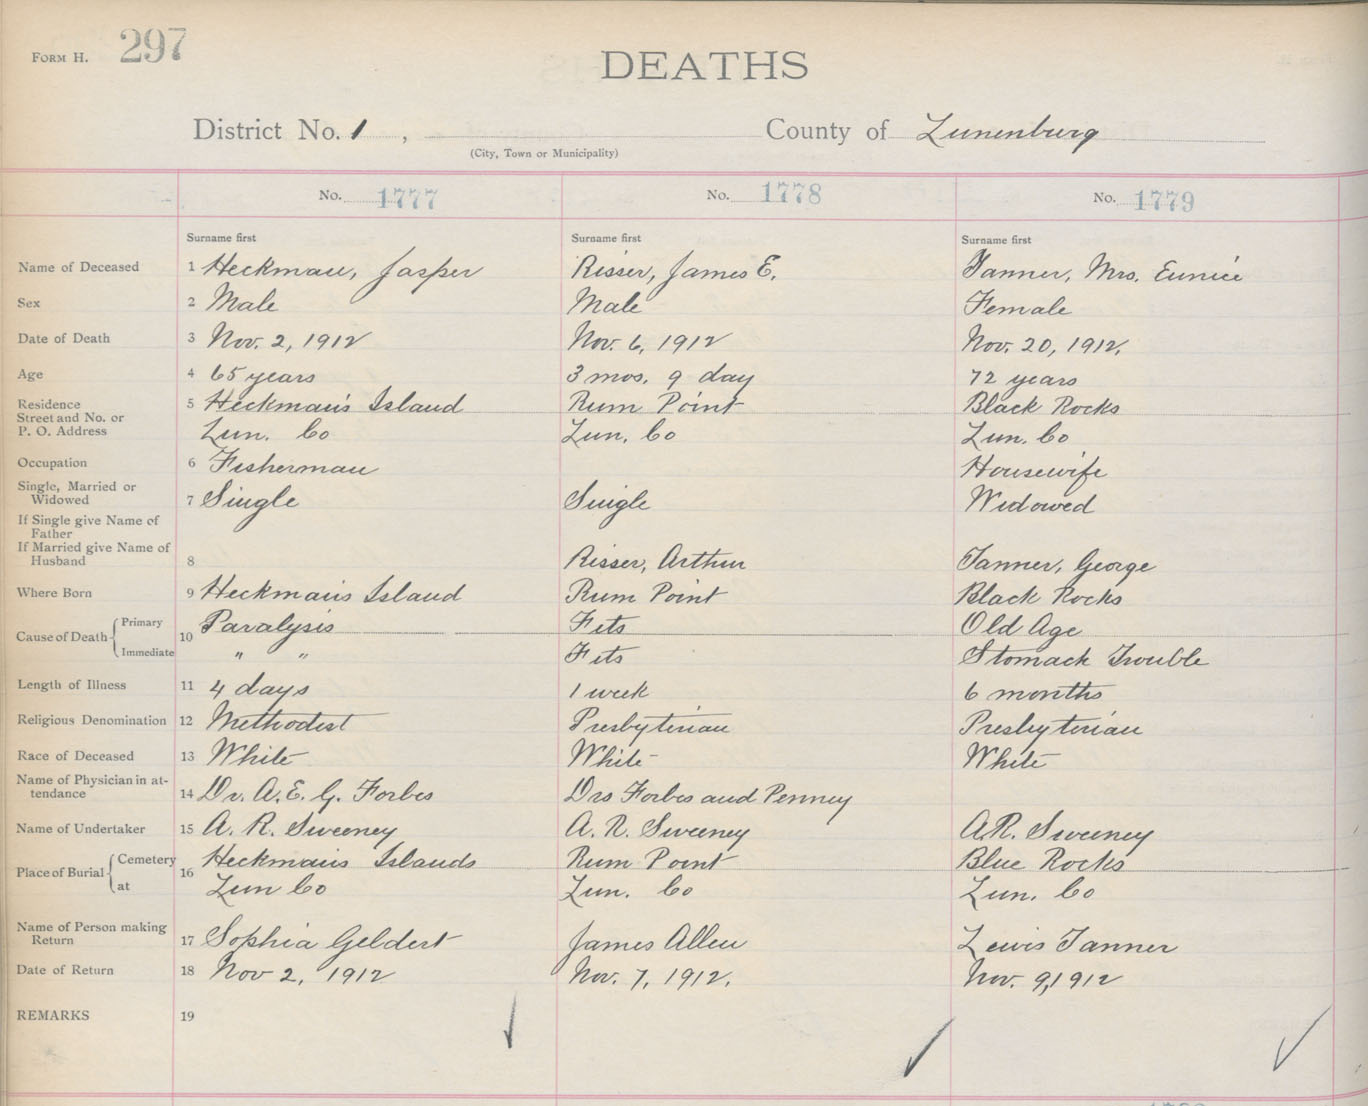 FORM H. 297
DEATHS
District No. 1 , County of Lunenburg
(City, Town or Municipality)
No. 1777 No. 1778 No. 1779
Surname first Surname first Surname first
Name of Deceased 1 Heckman, Jasper Risser, James E. Tanner, Mrs. Eunice
Sex 2 Male Male Female
Date of Death 3 Nov. 2, 1912 Nov. 6, 1912 Nov. 20, 1912.
Age 4 65 years 3 mos. 9 day 72 years
Residence 5 Heckman's Island Rum Point Black Rocks
Street and No. or
P. O. Address Lun. Co Lun. Co Lun. Co
Occupation 6 Fisherman Housewife
Single, Married or
Widowed 7 Single Single Widowed
If Single give Name of
Father
If Married give Name of
Husband 8 Risser, Arthur Tanner, George
Where Born 9 Heckman's Island Rum Point Black Rocks
Cause of Death Primary 10 Paralysis Fits Old Age
Immediate " " Fits Stomack Trouble
Length of Illness 11 4 days 1 week 6 months
Religious Denomination 12 Methodist Presbyterian Presbyterian
Race of Deceased 13 White White White
Name of Physician in at-
tendance 14 Dr. A. E. G. Forbes Drs Forbes and Penney
Name of Undertaker 15 A. R. Sweeney A. R. Sweeney A.R. Sweeney
Place of Burial Cemetery 16 Heckman's Islands Rum Point Blue Rocks
at Lun Co Lun. Co Lun. Co
Name of Person making
Return 17 Sophia Geldert James Allen Lewis Tanner
Date of Return 18 Nov 2, 1912 Nov. 7, 1912. Nov. 9, 1912
REMARKS 19